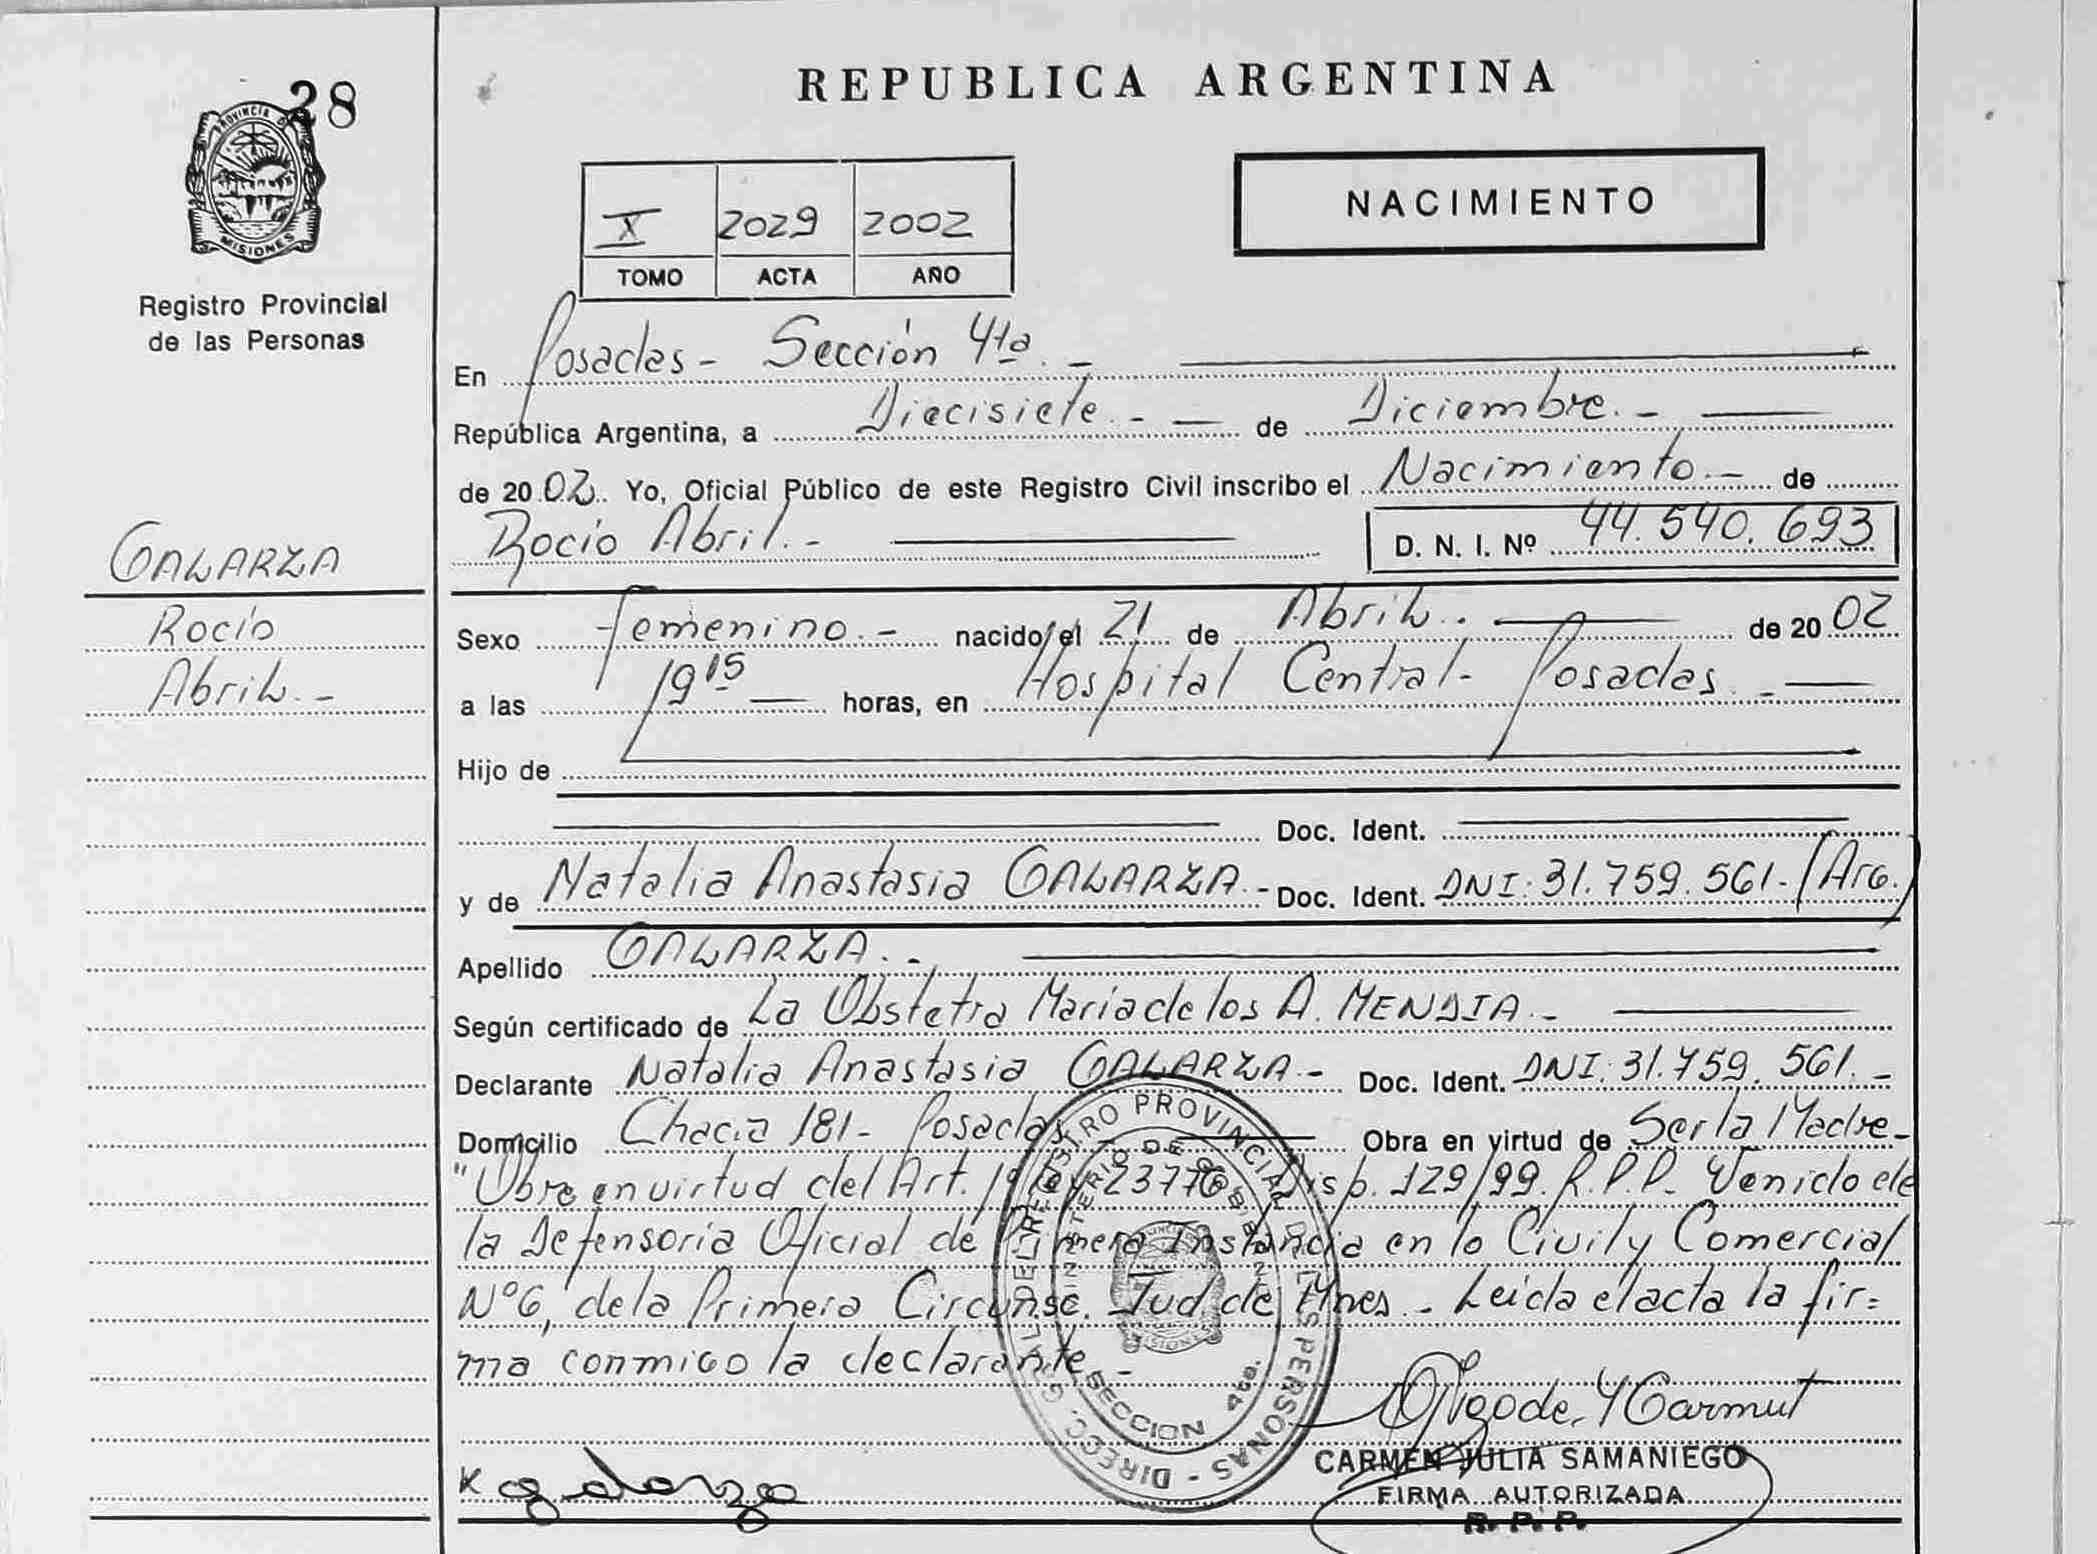 28
PROVINCIA DE
MISIONES
Registro Provincial
de las Personas
GALARZA
Rocío
Abril.-
REPUBLICA ARGENTINA
X 2029 2002
TOMO ACTA AÑO
NACIMIENTO
En Posadas - Sección 4ta. -
República Argentina, a Diecisiete.- de Diciembre.-
de 2002. Yo, Oficial Público de este Registro Civil inscribo el Nacimiento.- de
Rocío Abril.- D. N. I. Nº 44.540.693
Sexo Femenino.- nacido/el 21 de Abril. de 2002
a las 19 15 horas, en Hospital Central- Posadas.-
Hijo de
Doc. Ident.
y de Natalia Anastasia GALARZA.- Doc. Ident. DNI: 31.759.561.- (Arg.)
Apellido GALARZA.-
Según certificado de La Obstetra María de los A. MENDIA.-
Declarante Natalia Anastasia GALARZA.- Doc. Ident. DNI: 31.759.561.-
Domicilio 181- Posadas Obra en virtud de Ser la Madre-
"Obra en virtud del Art. 1º Ley 23776 Disp. 129/99. R.P.P. Venido de
la Defensoría Oficial de Primera Instancia en lo Civil y Comercial
Nº6, de la Primera Circunsc. Jud de Mnes.- Leída el acta la fir=
ma conmigo la declarante.-
DIRECC. GRAL. DEL REGISTRO PROVINCIAL DE LAS PERSONAS -
MINISTERIO DE GOBIERNO
MISIONES
SECCION 4ta.
galarza
CARMEN JULIA SAMANIEGO
FIRMA AUTORIZADA
R. P. P.